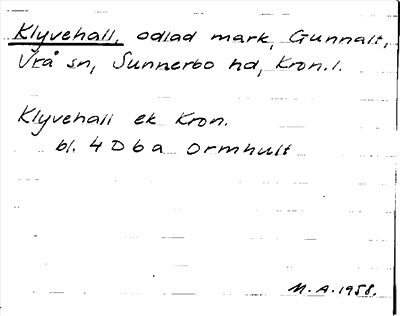 Klyvehall, odlad mark, Gunnalt,
Vrå sn, Sunnerbo hd, Kron. l.
Klyvehall ek Kron.
bl. 4 D 6 a Ormhult
M. A. 1958.